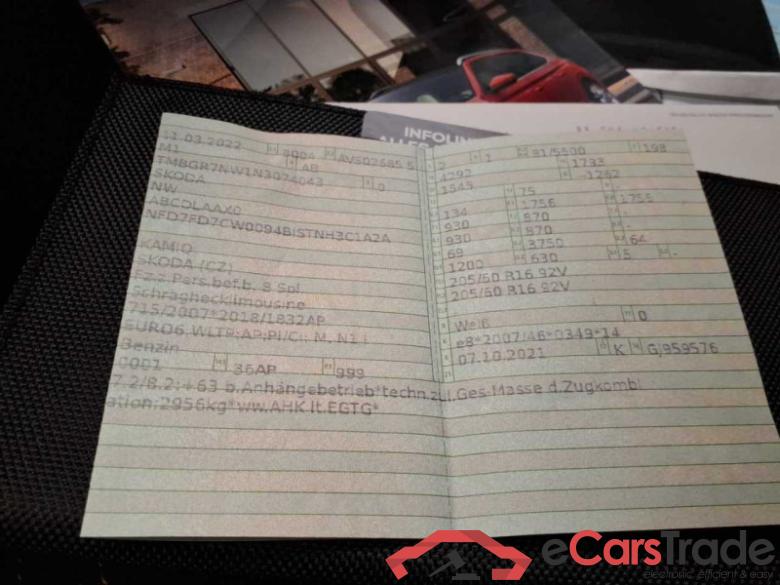 INFOLIN
ALLES
11.03.2022 8004 AVS02685 5
M1 AB
TMBGR7NW1N3074043 0
SKODA
NW
ABCDLAAX0
NFD7FD7CW0094BISTNH3C1A2A
KAMIQ
SKODA (CZ)
Fz.z.Pers.bef.b. 8 Spl.
Schräghecklimousine
715/2007*2018/1832AP
EURO6 WLTP;AP;PI/CI; M, N1 I
Benzin
0001 36AP 999
7.2/8.2:+63 b.Anhängebetrieb*techn.zul.Ges-Masse d.Zugkombi
ation:2956kg*ww.AHK lt.EGTG*
2 1 81/5500 198
4292 1793
1545 -1262
75 -
134 1756 1755
930 870 -
930 870 -
69 3750 64
1200 630 5 -
205/60 R16 92V
205/60 R16 92V
Weiß 0
e8*2007/46*0349*14
07.10.2021 K GJ959576
eCarsTrade
electronic, efficient & easy